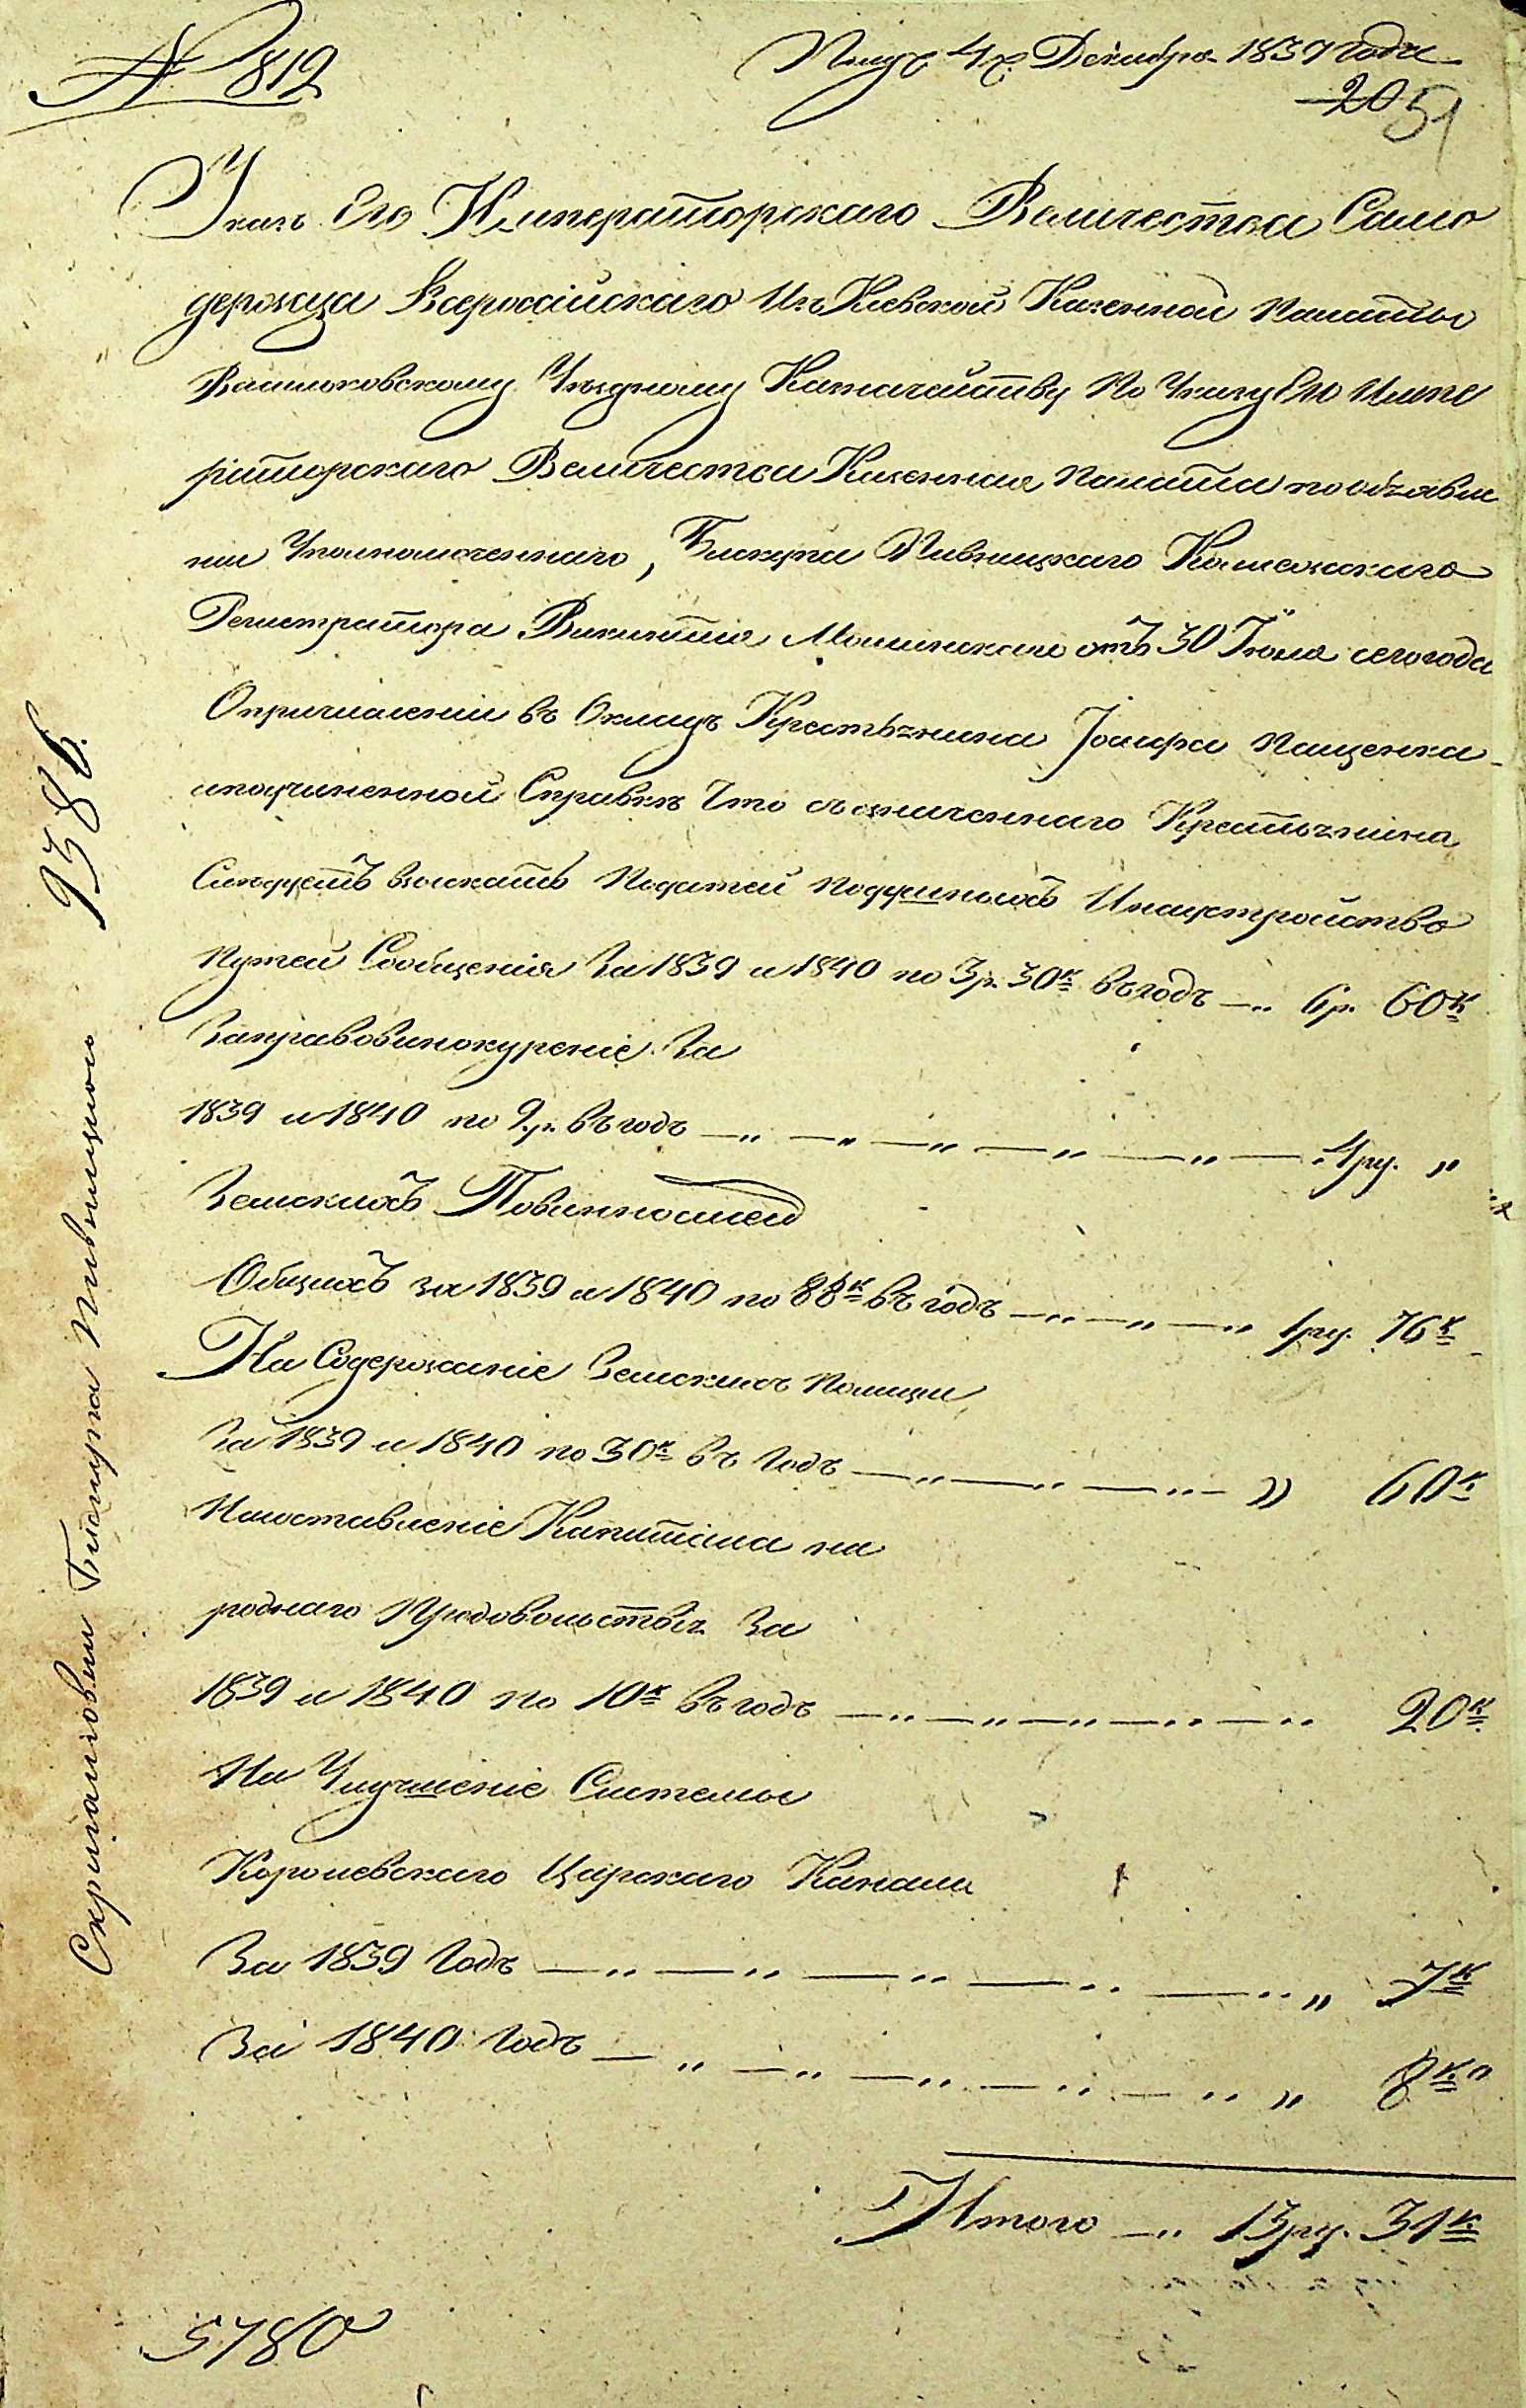 № 812
Получ 4го Декабря 1839 года
20 51
Указъ Его Императорскаго Величества Само
держца Всероссійскаго Изъ Кіевской Казенной Палаты
Васильковскому Уѣздному Казначейству По Указу Его Импе
раторскаго Величества Казенная Палата по объявле
нію Уполномоченнаго, Бискупа Пивницкаго Колежскаго
Регистратора Викентія отъ 30 Іюля сего года
О причисленіи въ Окладъ Крестьянина Іосифа Пащенка
и по учиненной Справкѣ Что съ означеннаго Крестьянина
Слѣдуетъ взыскать Податей Подушныхъ И на устройство
Путей Сообщенія За 1839 и 1840 по 3р. 30к въ годъ — 6р. 60к
За право винокуренія За
1839 и 1840 по 2р. въ годъ — 4ру. "
Земскихъ Повинностей
Общихъ за 1839 и 1840 по 88к въ годъ — 1ру. 76к
На Содержаніе Земскихъ Полиции
За 1839 и 1840 по 30к въ Годъ — " 60к
На составленіе Капитала на
роднаго Продовольствія За
1839 и 1840 по 10к въ годъ — 20к
На Улучшеніе Системы
Королевскаго Царскаго Канала
За 1839 Годъ — " 7к
За 1840 Годъ — " 8к"
Итого — 13ру. 31к
5780
Скригаловки Бискупа Пивницкого 9386.